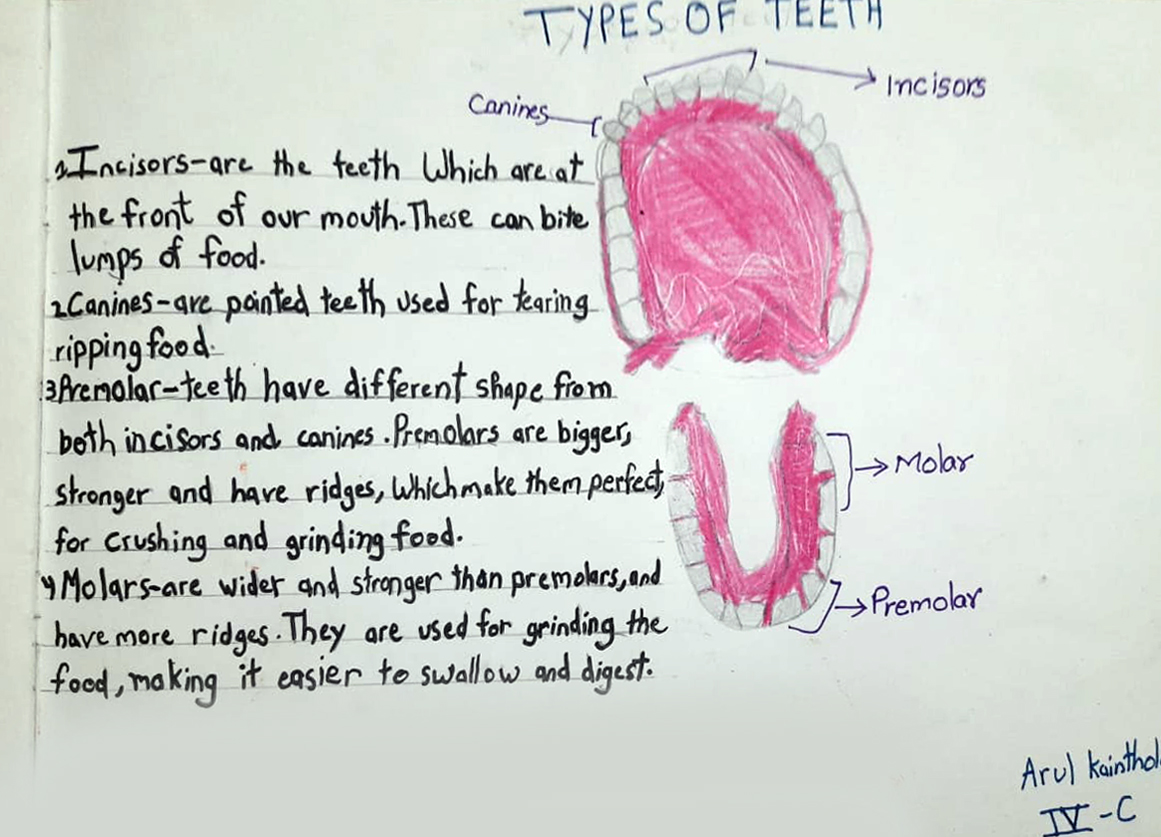 TYPES OF TEETH
Incisors
Canines
1 Incisors-are the teeth Which are at
the front of our mouth. These can bite
lumps of food.
2 Canines-are pointed teeth used for tearing
ripping food.
3 Premolar-teeth have different shape from
both incisors and canines. Premolars are bigger,
stronger and have ridges, Which make them perfect,
for crushing and grinding food.
4 Molars-are wider and stronger than premolars, and
have more ridges. They are used for grinding the
food, making it easier to swallow and digest.
Molar
Premolar
Arul
IV-C